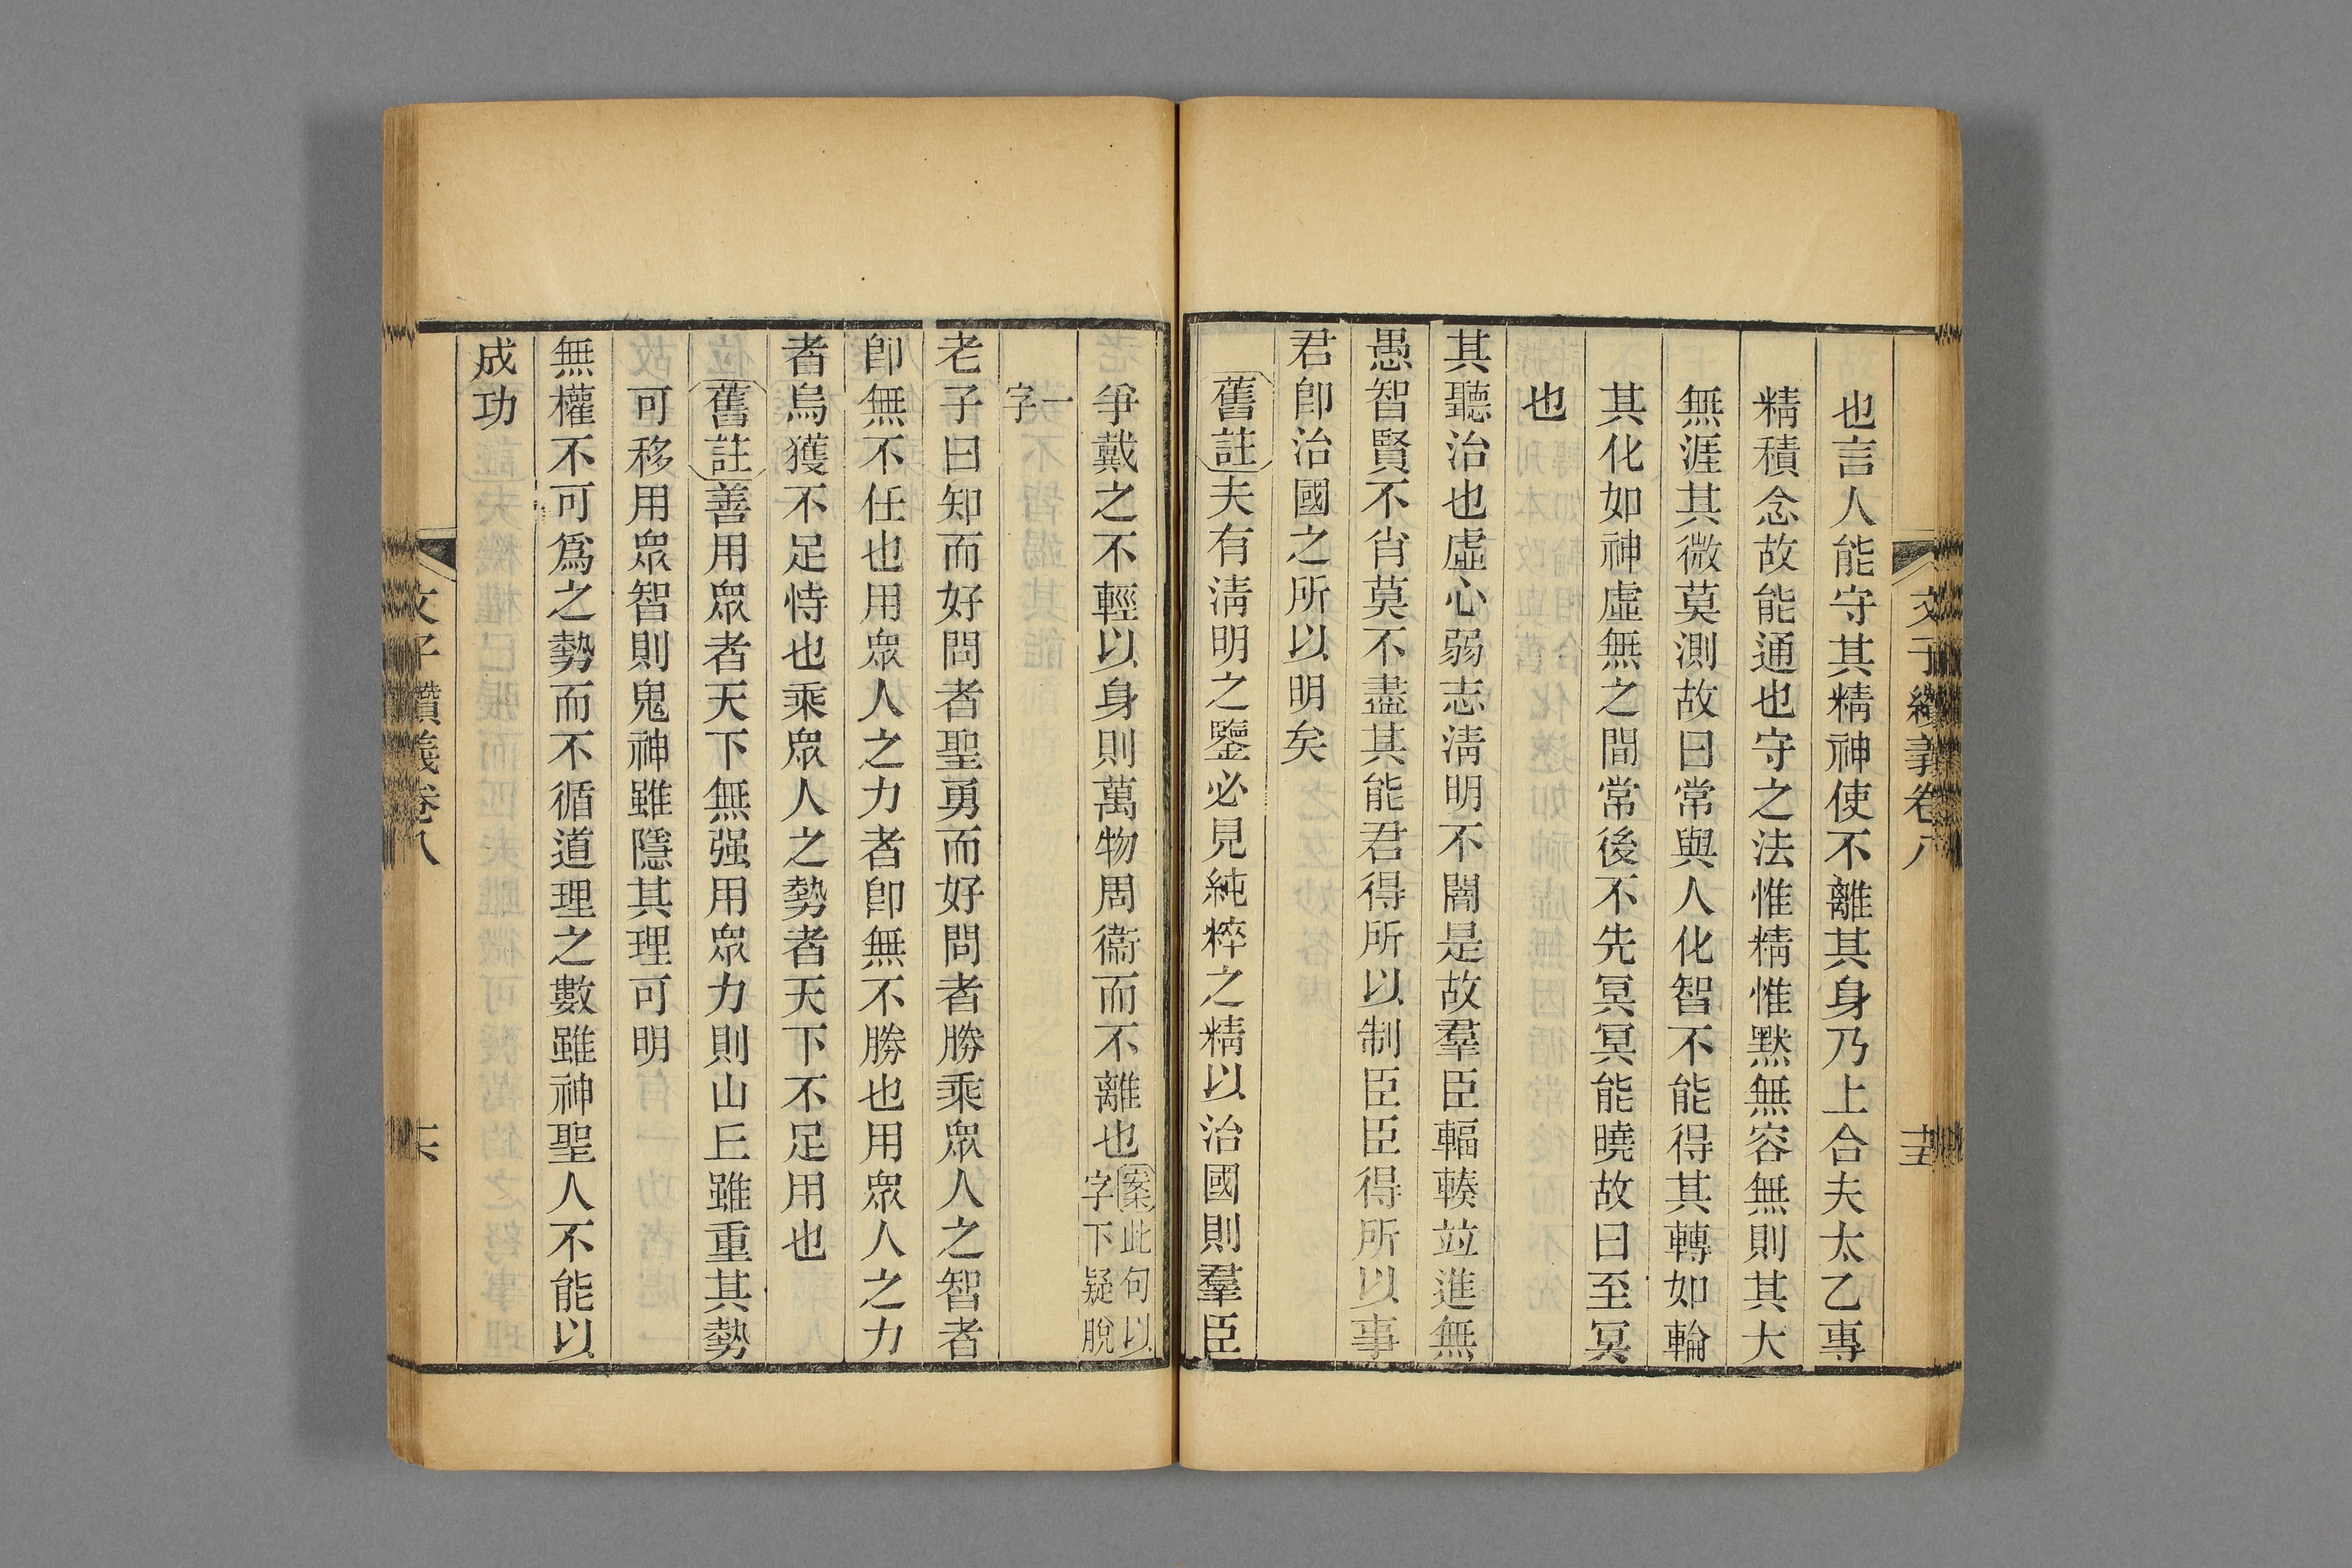 文子纘義卷八 十五
也言人能守其精神使不離其身乃上合夫太乙專
精積念故能通也守之法惟精惟默無容無則其大
無涯其微莫測故曰常與人化智不能得其轉如輪
其化如神虛無之間常後不先冥冥能曉故曰至冥
也
其聽治也虛心弱志淸明不闇是故羣臣輻輳竝進無
愚智賢不肖莫不盡其能君得所以制臣臣得所以事
君卽治國之所以明矣
舊註夫有淸明之鑒必見純粹之精以治國則羣臣
爭戴之不輕以身則萬物周衞而不離也案此句以字下疑脫
一字
老子曰知而好問者聖勇而好問者勝乘眾人之智者
卽無不任也用眾人之力者卽無不勝也用眾人之力
者烏獲不足恃也乘眾人之勢者天下不足用也
舊註善用眾者天下無强用眾力則山丘雖重其勢
可移用眾智則鬼神雖隱其理可明
無權不可爲之勢而不循道理之數雖神聖人不能以
成功
文子纘義卷八 十六